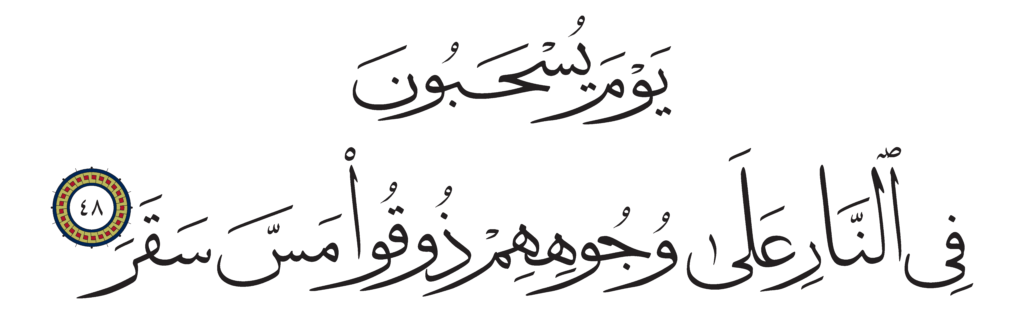 يَوْمَ يُسْحَبُونَ
فِى ٱلنَّارِ عَلَىٰ وُجُوهِهِمْ ذُوقُوا۟ مَسَّ سَقَرَ ٤٨